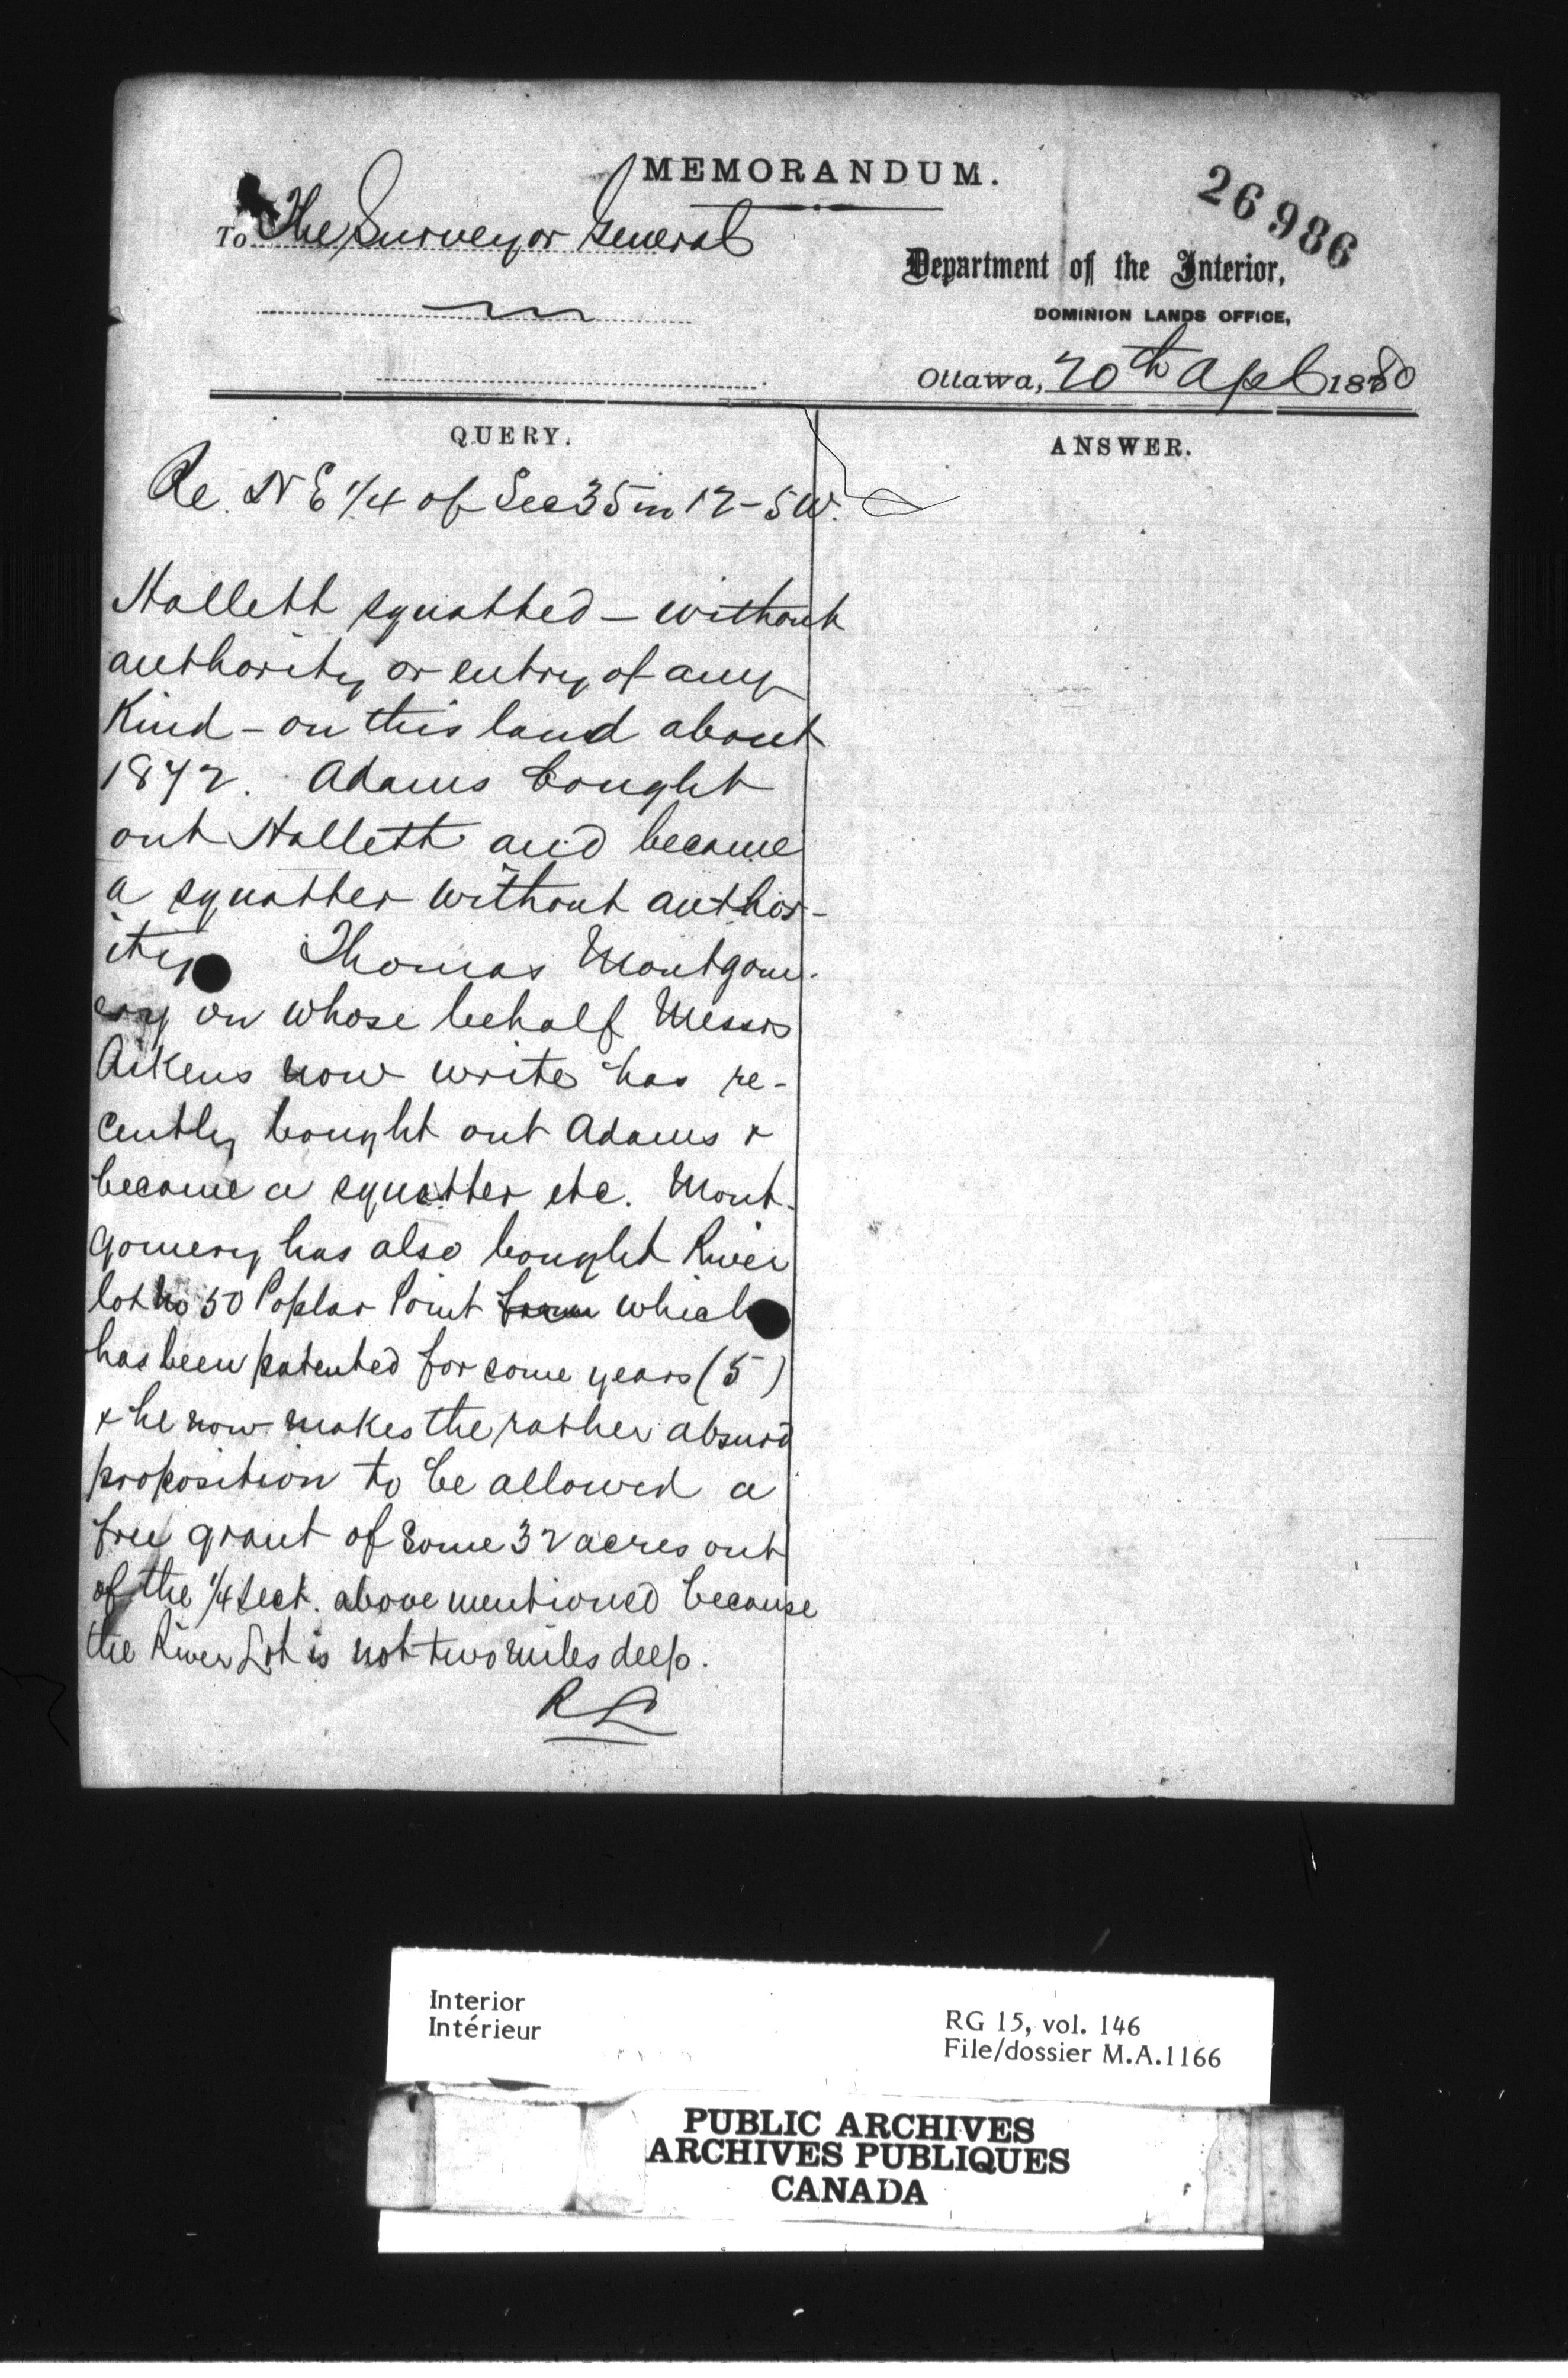 MEMORANDUM.
26986
To The Surveyor General
Department of the Interior,
DOMINION LANDS OFFICE,
Ottawa, 20th Apl 1880
QUERY.
ANSWER.
Re. N E 1/4 of Sec 35 in 12-5W.
Hallett squatted - without
authority or entry of any
Kind - on this land about
1872. Adams bought
out Hallett and became
a squatter without author-
ity Thomas Montgom-
ery on whose behalf Messrs
Aikens now write has re-
cently bought out Adams &
became a squatter etc. Mont-
gomery has also bought River
lot No 50 Poplar Point from which
has been patented for some years (5)
& he now makes the rather absurd
proposition to be allowed a
free grant of some 32 acres out
of the 1/4 Sect. above mentioned because
the River Lot is not two miles deep.
Interior
Intérieur
RG 15, vol. 146
File/dossier M.A.1166
PUBLIC ARCHIVES
ARCHIVES PUBLIQUES
CANADA